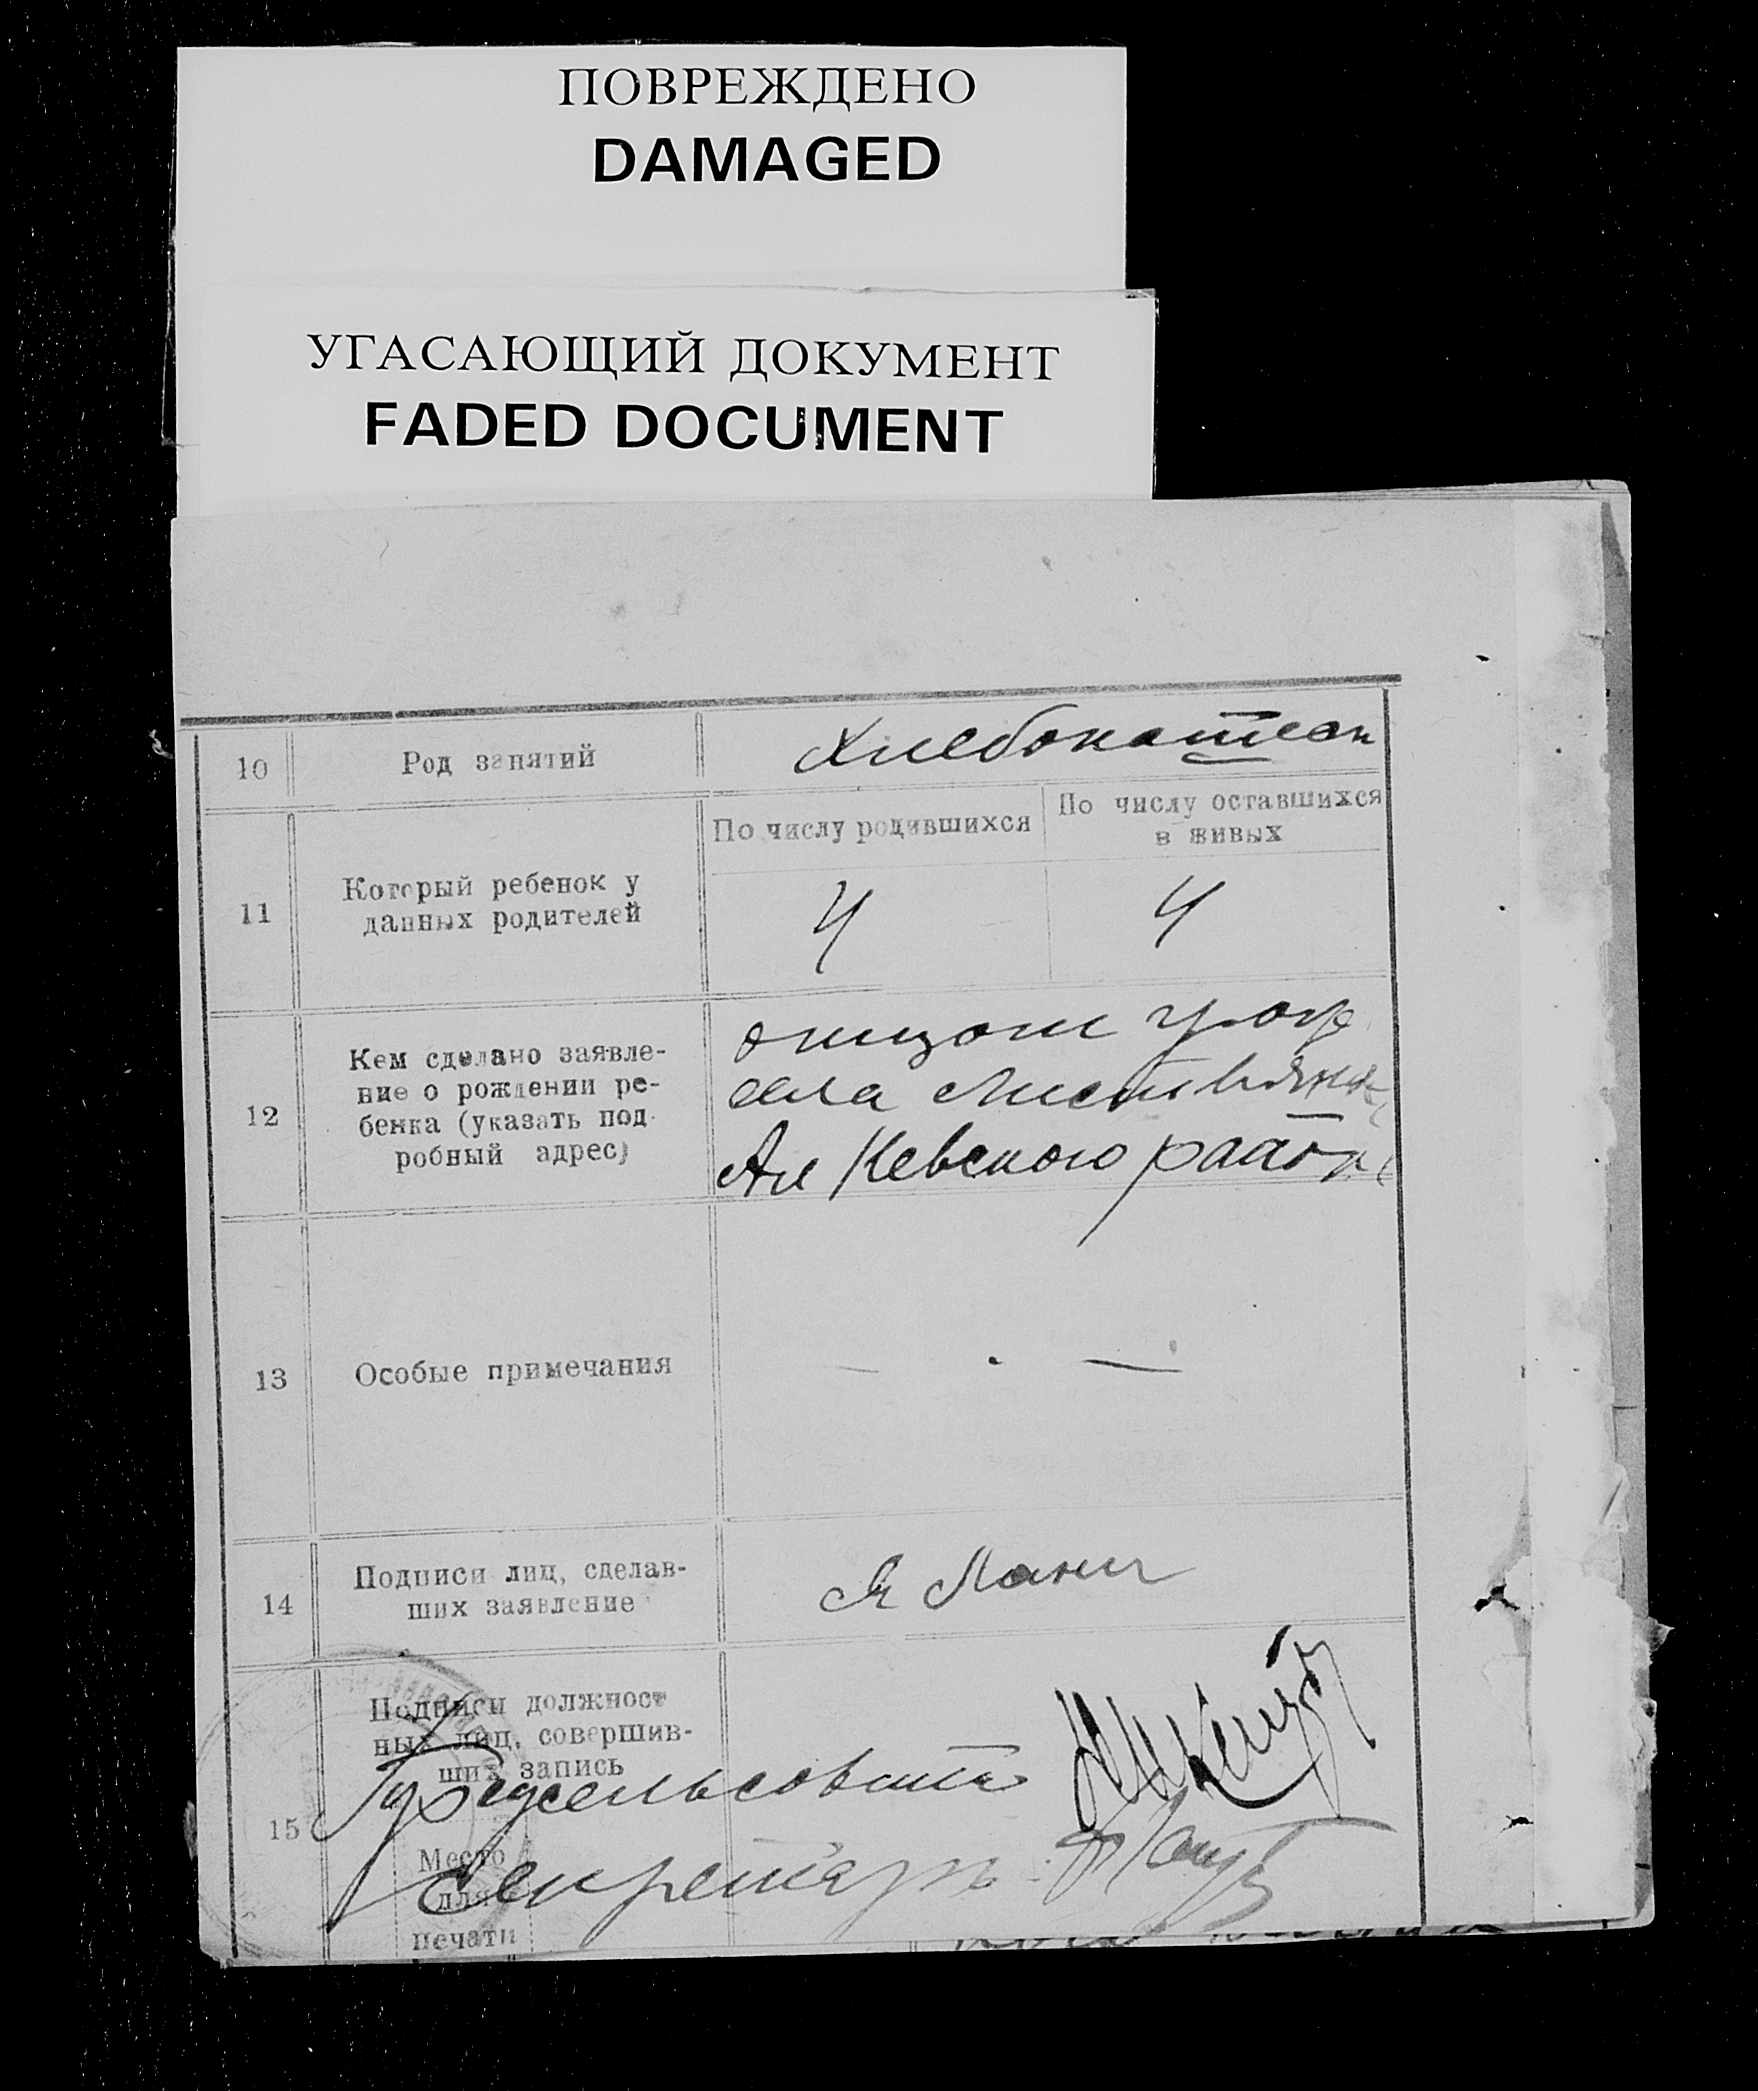 ПОВРЕЖДЕНО
DAMAGED
УГАСАЮЩИЙ ДОКУМЕНТ
FADED DOCUMENT
10
Род занятий
11
Который ребенок у
данных родителей
По числу родившихся
По числу оставшихся
в живых
4
4
12
Кем сделано заявле-
ние о рождении ре-
бенка (указать под-
робный адрес)
отцом
села
района
13
Особые примечания
— · —
14
Подписи лиц, сделав-
ших заявление
15
Подписи должност
ных лиц, совершив-
ших запись
Предсельсовета
Секретарь
Место
для
печати